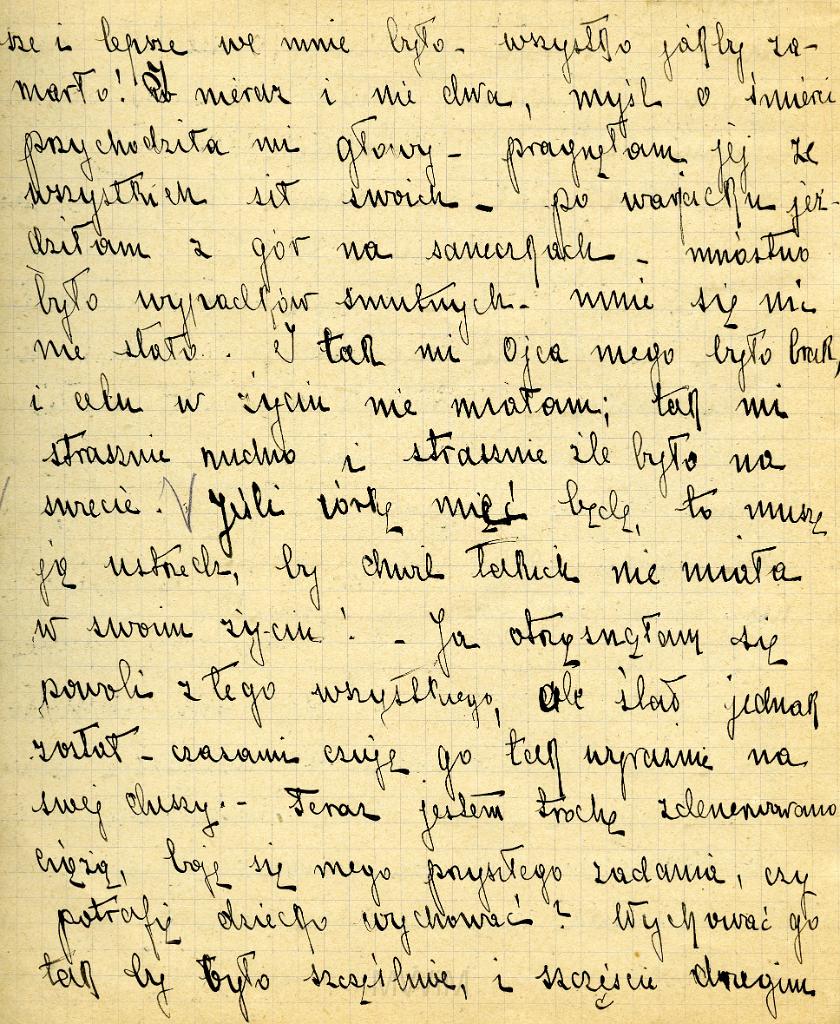 sze i lepsze we mnie było – wszystko jakby za-
marło! I nieraz i nie dwa, myśl o śmierci
przychodziła mi głowy – pragnęłam jej ze
wszystkich sił swoich – po warjacku jeź-
dziłam z gór na saneczkach – mnóstwo
było wypadków smutnych – mnie się nic
nie stało. I tak mi Ojca mego było brak,
i celu w życiu nie miałam; tak mi
strasznie nudno i strasznie źle było na
świecie. Jeśli córkę mieć będę, to muszę
ją ustrzedz, by chwil takich nie miała
w swoim życiu! – Ja otrząsnęłam się
powoli z tego wszystkiego, ale ślad jednak
został – czasami czuję go tak wyraźnie na
swej duszy. – Teraz jestem trochę zdenerwowana
ciążą, boję się mego przyszłego zadania, czy
potrafię dziecko wychować? Wychować go
tak by było szczęśliwe, i szczęście drugim